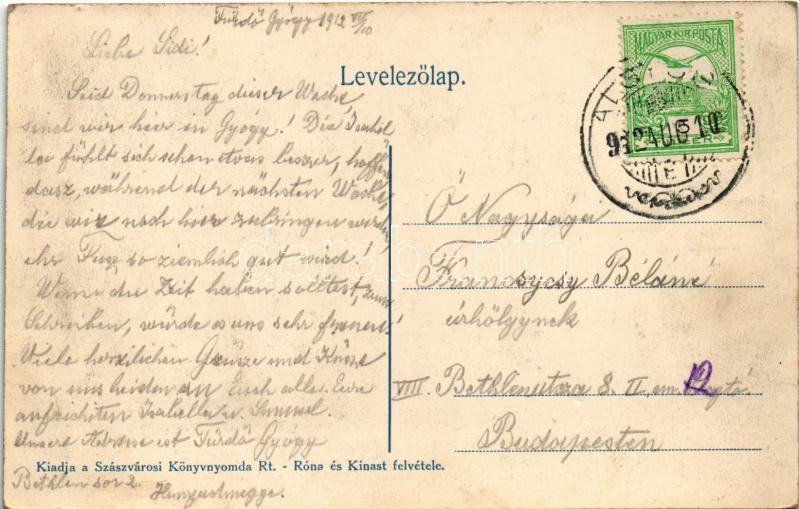 Fürdő Gyógy 1912 VIII/10
Liebe Sidi!
Levelezőlap.
MAGYAR KIR. POSTA
912 AUG 10
Seid Donnerstag dieser Woche,
sind wir hier in Gyógy! Die Isabel
le fühlt sich schon etwas besser, hoffen
dasz, während der nächsten Woche,
die wir noch hier zubringen werden
ihr Fusz so ziemlich gut wird!
Wenn du Zeit haben solltest, zum
Schreiben, würde es uns sehr freuen!
Viele herzlichen Grüsze und Küsse
von uns beiden an Euch alle. Eure
aufrichten Isabella u. Sammel.
Unsere Adresse ist Fürdő Gyógy
Ő Nagysága
Francsycsy Béláné
úrhölgynek
VIII Bethlen utcza 8. II. em 12 ajtó.
Budapesten
Kiadja a Szászvárosi Könyvnyomda Rt. - Róna és Kinast felvétele.
Bethlen sor 2.
Hunyadmegye.
darabanth